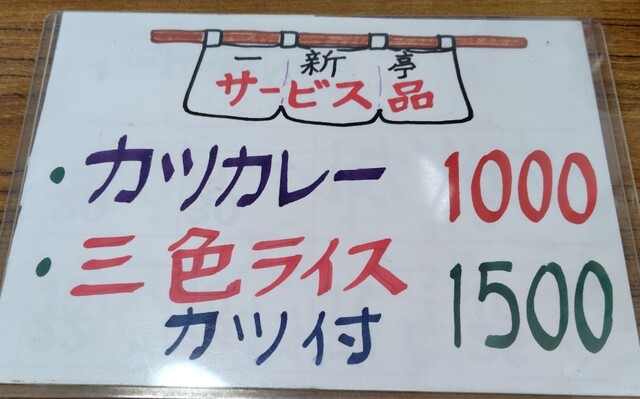 一新亭
サービス品
・カツカレー 1000
・三色ライス 1500
カツ付